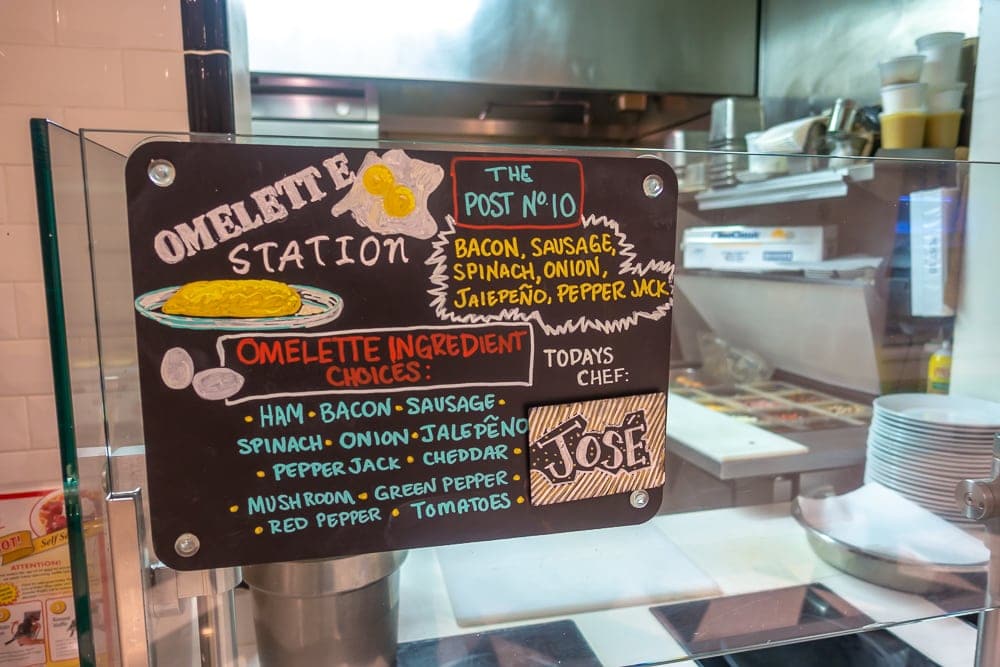 OMELETTE
STATION
THE
POST Nº.10
BACON, SAUSAGE,
SPINACH, ONION,
JAlEPEÑO, PEPPER JACK
OMELETTE INGREDIENT
CHOICES:
• HAM • BACON • SAUSAGE •
SPINACH • ONION • JALEPEÑO
• PEPPER JACK • CHEDDAR •
• MUSHROOM • GREEN PEPPER •
• RED PEPPER • TOMATOES •
TODAYS
CHEF:
JOSÉ
OT!
Self Se
ATTENTION!